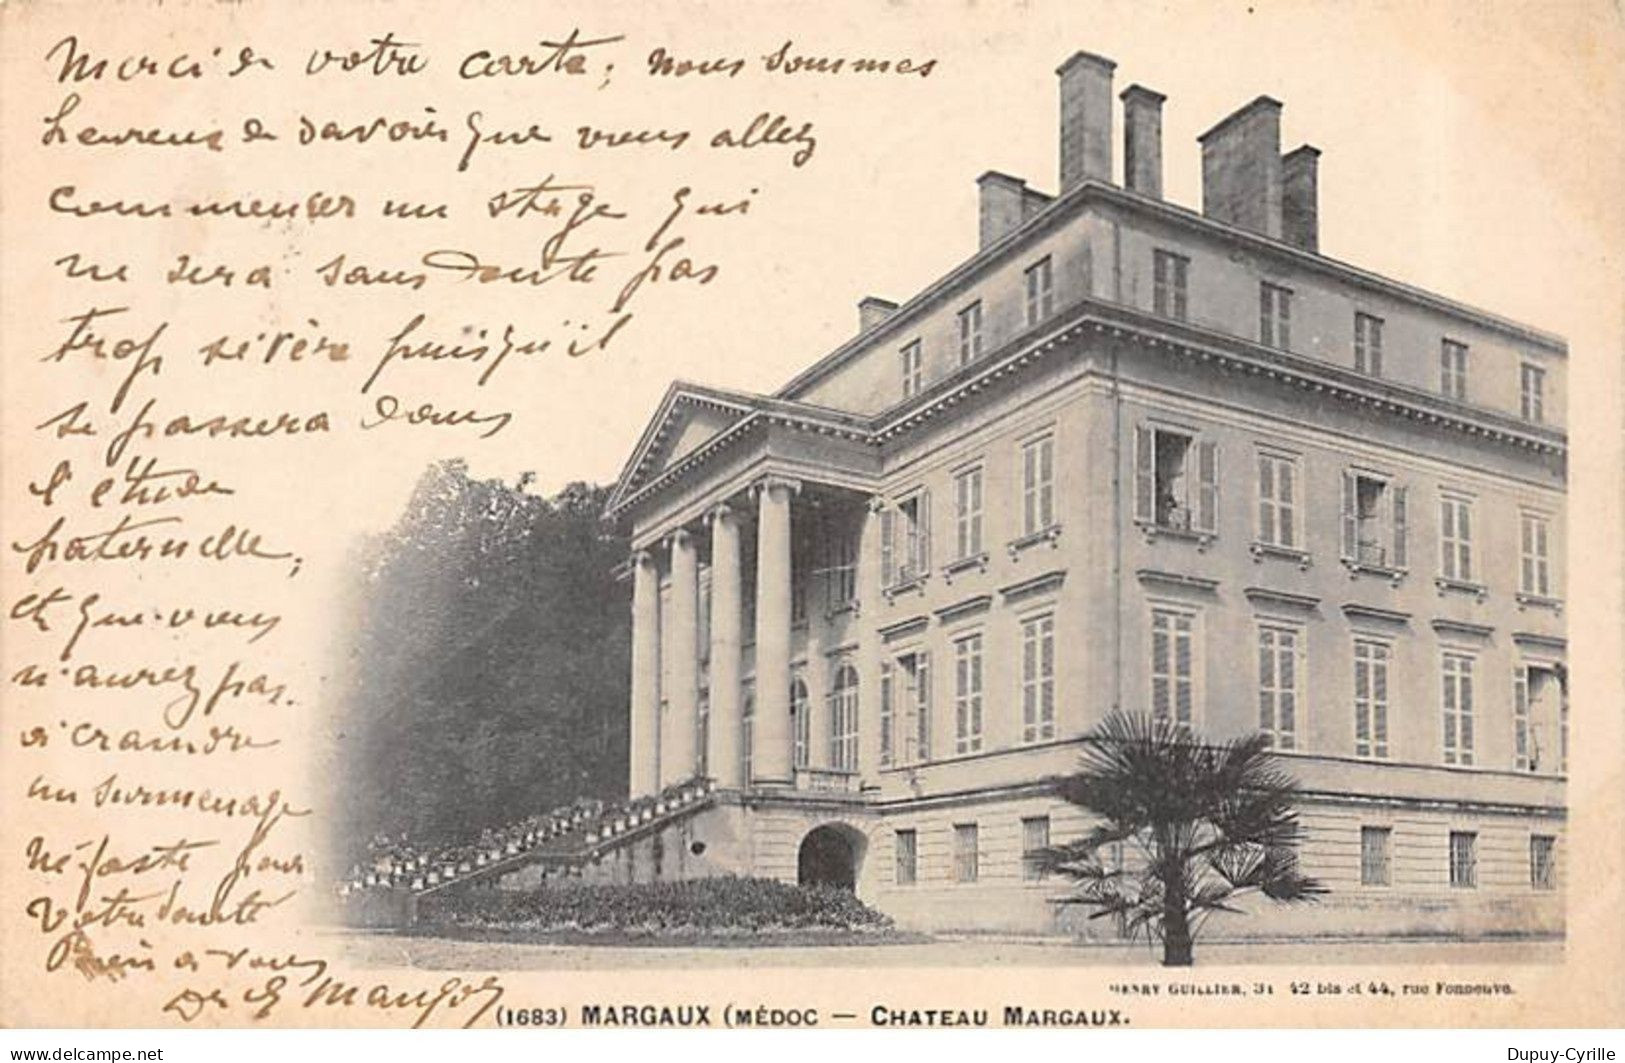 Merci de votre carte; nous sommes
heureux de savoir que vous allez
commencer un stage qui
ne sera sans doute pas
trop sévère puisqu'il
se passera dans
l'étude
paternelle,
et que vous
n'aurez pas
à craindre
un surmenage
néfaste pour
votre santé
Bien à vous
Dr
HENRY GUILLIER, 31 42 bis et 44, rue Fonneuve.
(1683) MARGAUX (MÉDOC — CHATEAU MARGAUX.
delcampe.net
Dupuy-Cyrille